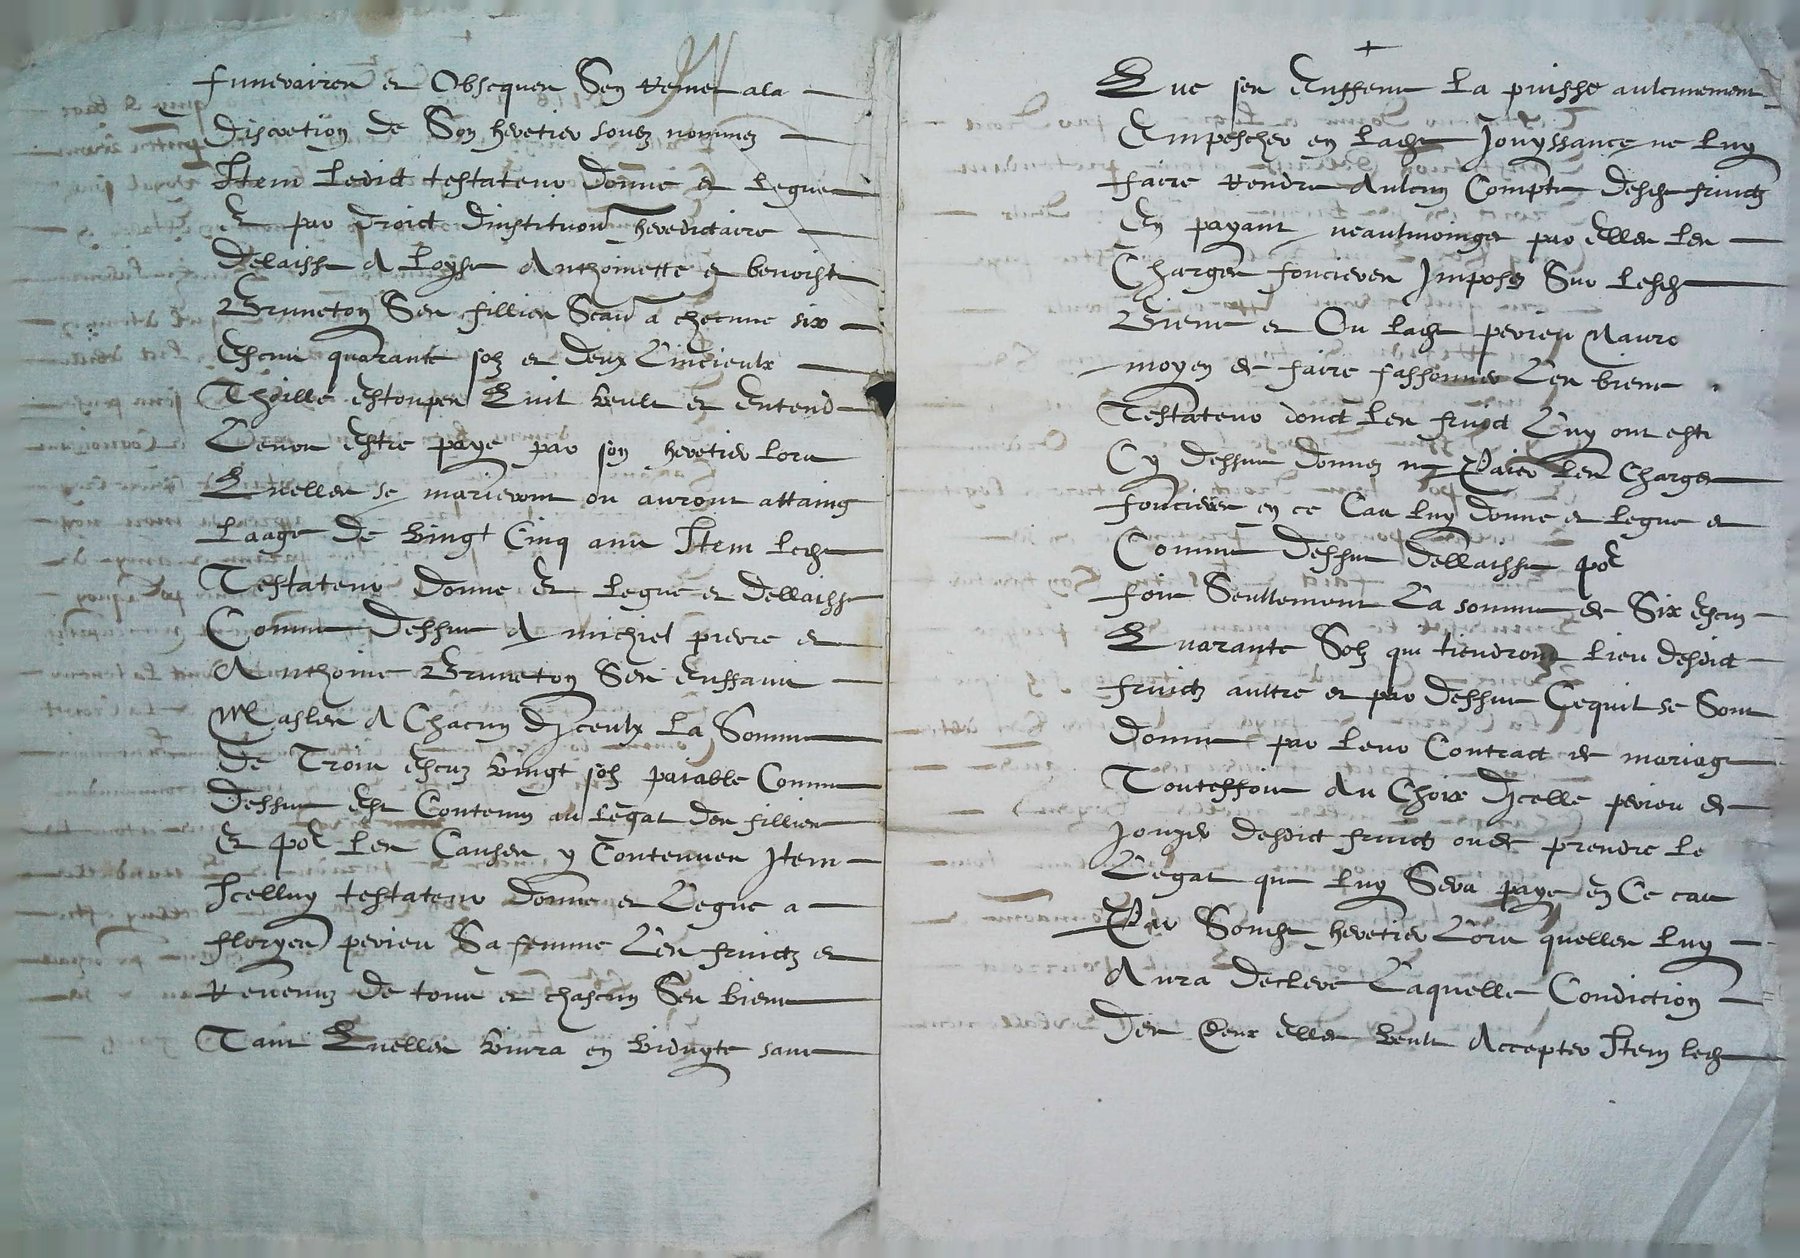 funeraires et Obseques Sen remet ala
discretion de Son heretier soubz nommez
Item Ledict testateur donne et Legue
Et par droict dinstitution heredictaire
delaisse A Loyse Anthoinette et benoiste
Bruneton Ses fillies Scavoir a checune six
Escus quarante solz et deux Lincieulx
Thoille estoupes Quil veult et Entend
Leur Estre paye par son heretier Lors
Quelles se marieront ou auront attaing
Laage de vingt Cinq ans Item Ledict
Testateur donne Et Legue et dellaisse
Comme dessus A michiel pierre et
Anthoine Bruneton Ses Enffans
Masles A Chacun dyceulx La Somme
de Trois escuz vingt solz paiable Comme
dessus Est Contenu au Legat des fillies
Et pour Les Causes y Contenues Item
Icelluy testateur donne et Legue a
floryen perieu Sa femme Les fruictz et
Revenuz de tous et chascun Ses biens
Tant Quelles vivra en viduyte sans
Que ses Enffens La puisse aulcunement
Empescher en Ladite Jouyssance ne Luy
faire rendre Aulcun Compte desdictz fruictz
En payant neautmoinges par Elles Les
Charges foncieres Imposes Sur Lesdictz
Biens et Ou Ladicte perieu Nauro
moyen de faire fassonner Les biens
Testateur donct Les fruict Luy ont este
Cy dessus donnez ny Paier Les Charges
foncieres en ce Cas Luy donne et Legue et
Comme dessus dellaisse pour
fois Seullement La somme de Six Escus
Quarante Solz qui tiendront Lieu desdict
fruictz aultre et par dessus Cequil se Sont
donne par Leur Contract de mariage
Touteffois Au Choix dycelle perieu de
Jouyr desdict fruictz ou de prendre Le
Legat que Luy Sera paye en Ce cas
Par Sondict heretier Lors quelles Luy
Aura declere Laquelle Condiction
des deux elles veult Accepter Item Ledict